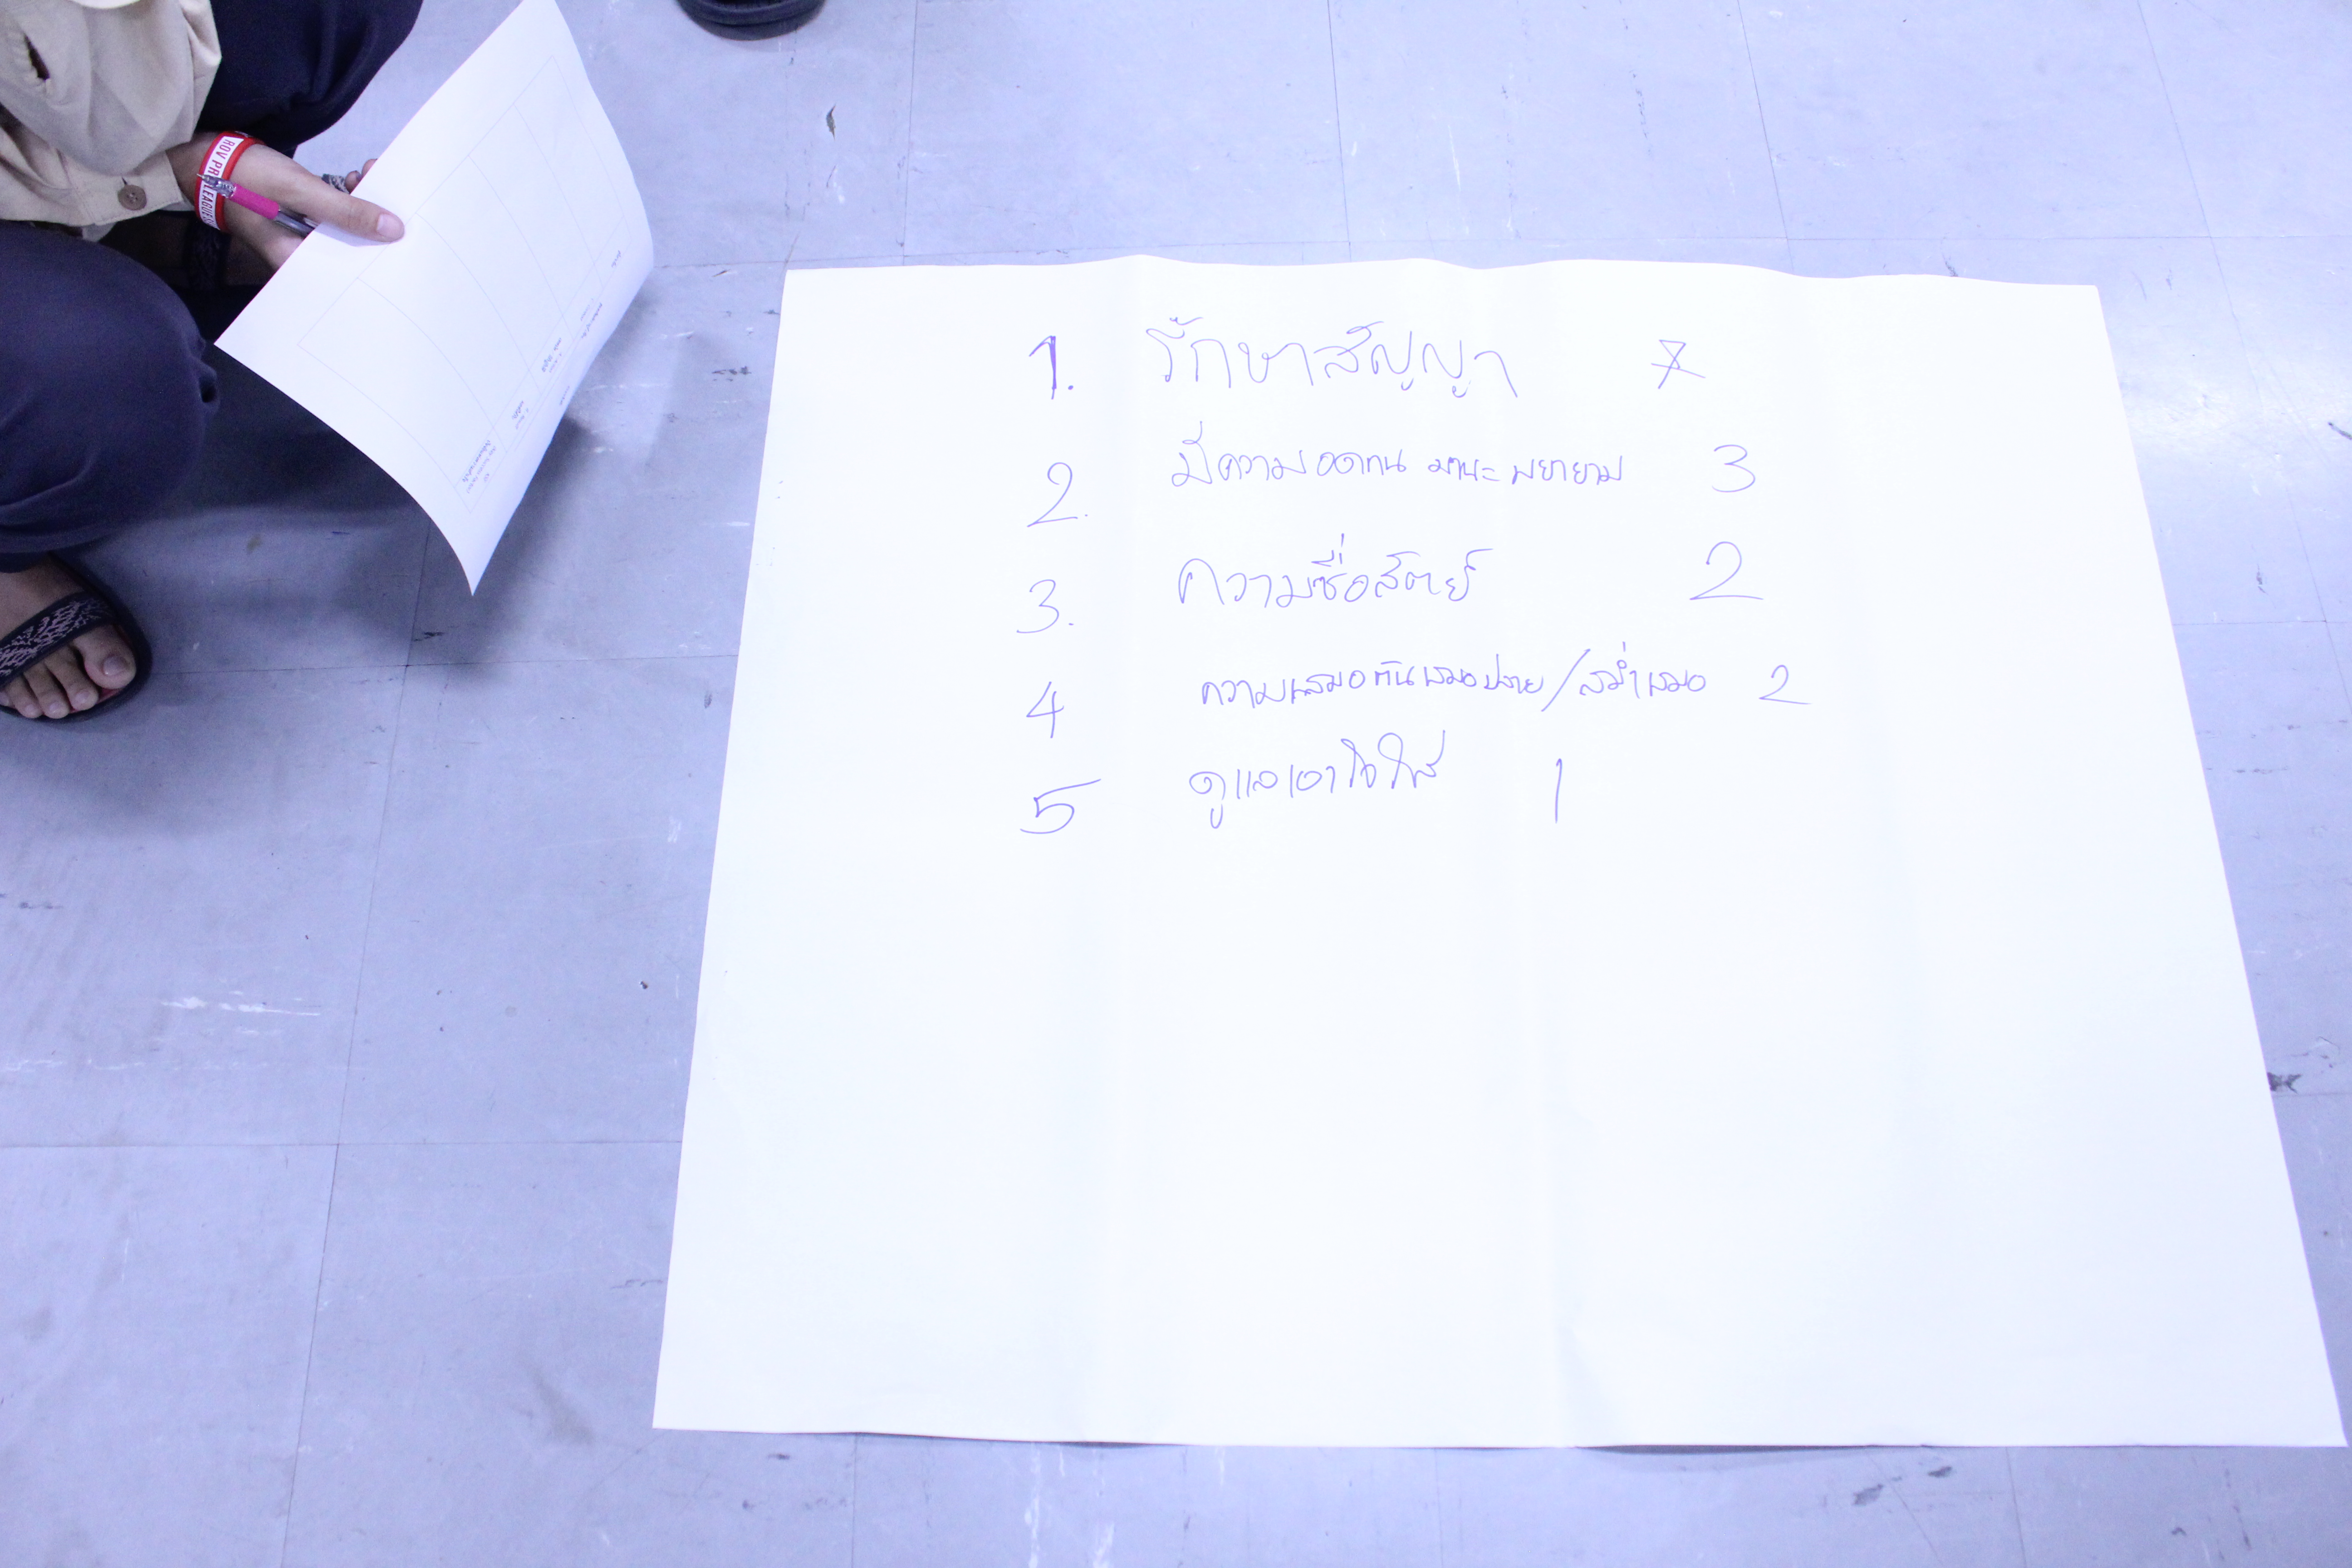 ROV PRO LEAGUE
1. รักษาสัญญา 7
2. มีความอดทน มานะ พยายาม 3
3. ความซื่อสัตย์ 2
4 ความเสมอต้นเสมอปลาย/สม่ำเสมอ 2
5 ดูแลเอาใจใส่ 1